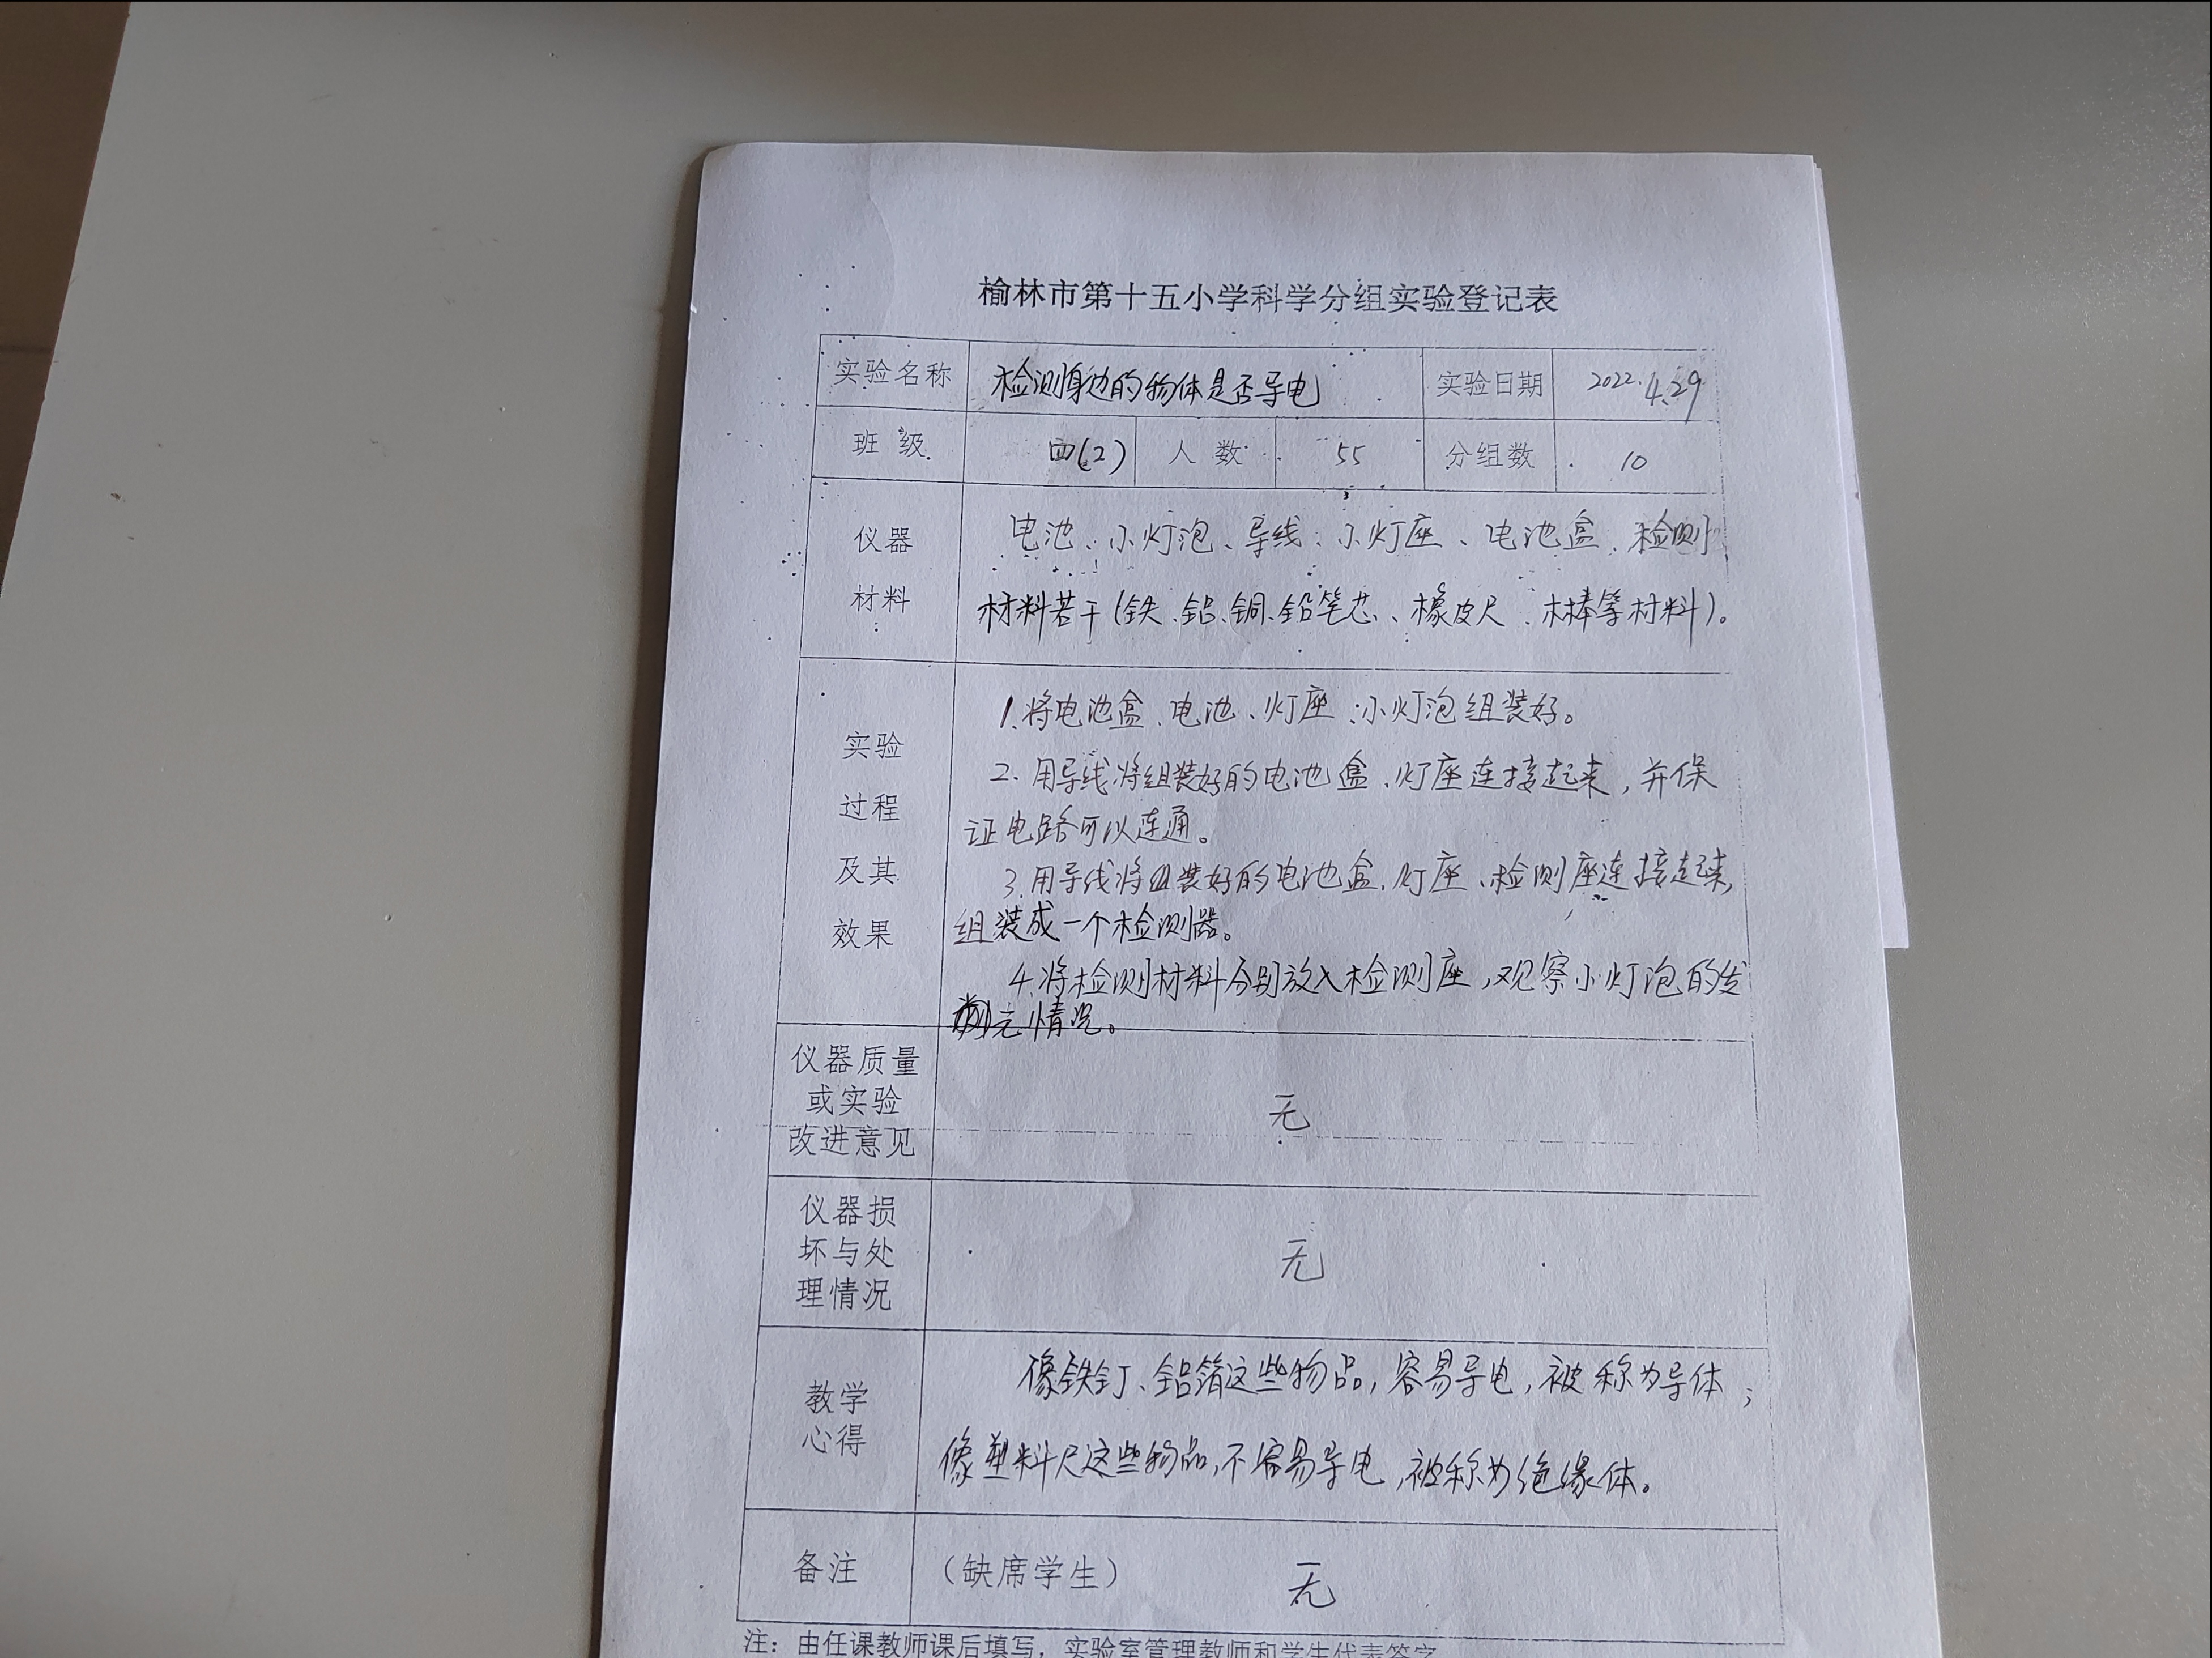 榆林市第十五小学科学分组实验登记表
实验名称 检测身边的物体是否导电 实验日期 2022.4.29
班级 四(2) 人数 55 分组数 10
仪器
材料
电池、小灯泡、导线、小灯座、电池盒、检测
材料若干(铁、铝、铜、铅笔芯、橡皮尺、木棒等材料)。
实验
过程
及其
效果
1.将电池盒、电池、灯座、小灯泡组装好。
2.用导线将组装好的电池盒、灯座连接起来,并保
证电路可以连通。
3.用导线将组装好的电池盒、灯座、检测座连接起来,
组装成一个检测器。
4.将检测材料分别放入检测座,观察小灯泡的发
亮情况。
仪器质量
或实验
改进意见
无
仪器损
坏与处
理情况
无
教学
心得
像铁钉、铝箔这些物品,容易导电,被称为导体;
像塑料尺这些物品,不容易导电,被称为绝缘体。
备注 (缺席学生) 无
注:由任课教师课后填写,实验室管理教师和学生代表签字